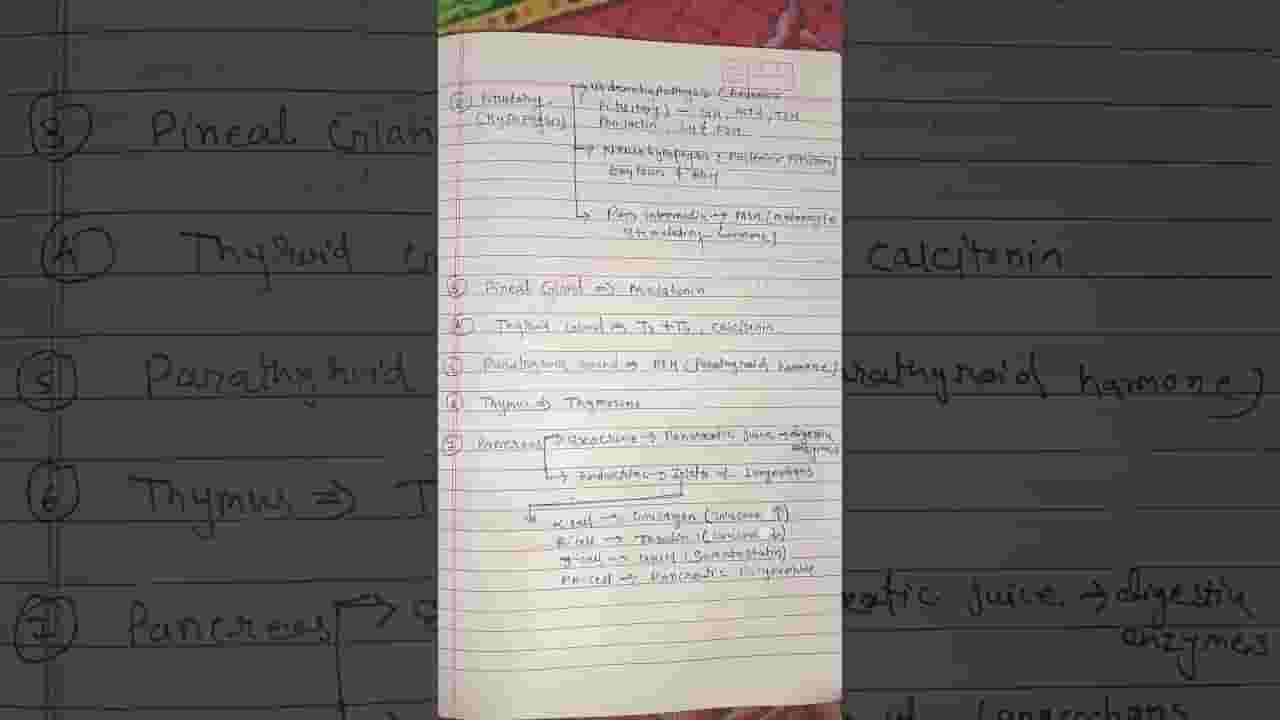 ② Pituitary (Hypophysis)
→ Adenohypophysis (Anterior
Pituitary) — GH, ACTH, TSH
Prolactin, LH, FSH
→ Neurohypophysis → Posterior Pituitary
Oxytocin + ADH
→ Pars intermedia → MSH (melanocyte
stimulating hormone)
③ Pineal Gland ⇒ Melatonin
④ Thyroid Gland ⇒ T₃ + T₄, calcitonin
⑤ Parathyroid Gland ⇒ PTH (Parathyroid harmone)
⑥ Thymus ⇒ Thymosine
⑦ Pancreas → Exocrine → Pancreatic juice → digestive
enzymes
→ Endocrine → Islets of Langerhans
α cell → Glucagon (Glucose ↑)
β cell → Insulin (Glucose ↓)
cell → (Somatostatin)
PP-cell → Pancreatic Polypeptide
③ Pineal Glan
④ Thyroid G
calcitonin
⑤ Parathyroid
arathyroid harmone)
⑥ Thymus ⇒ T
⑦ Pancreas →
eatic juice → digestiv
enzymes
of Langerhans